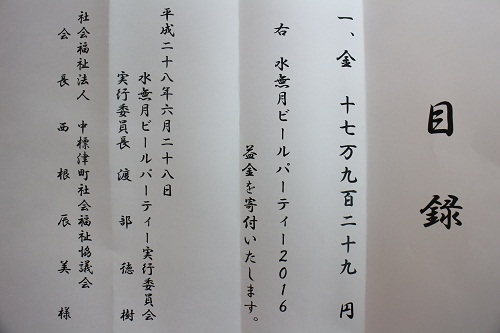 目録
一、金 十七万九百二十九 円
右 水無月ビールパーティー2016
益金を寄付いたします。
平成二十八年六月二十八日
水無月ビールパーティー実行委員会
実行委員長 渡部徳樹
社会福祉法人 中標津町社会福祉協議会
会長 西根辰美 様